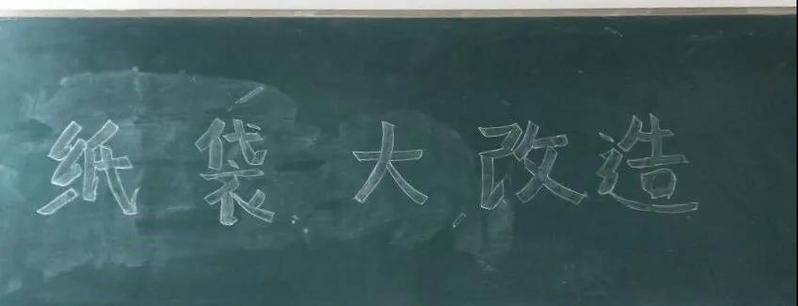 纸袋大改造